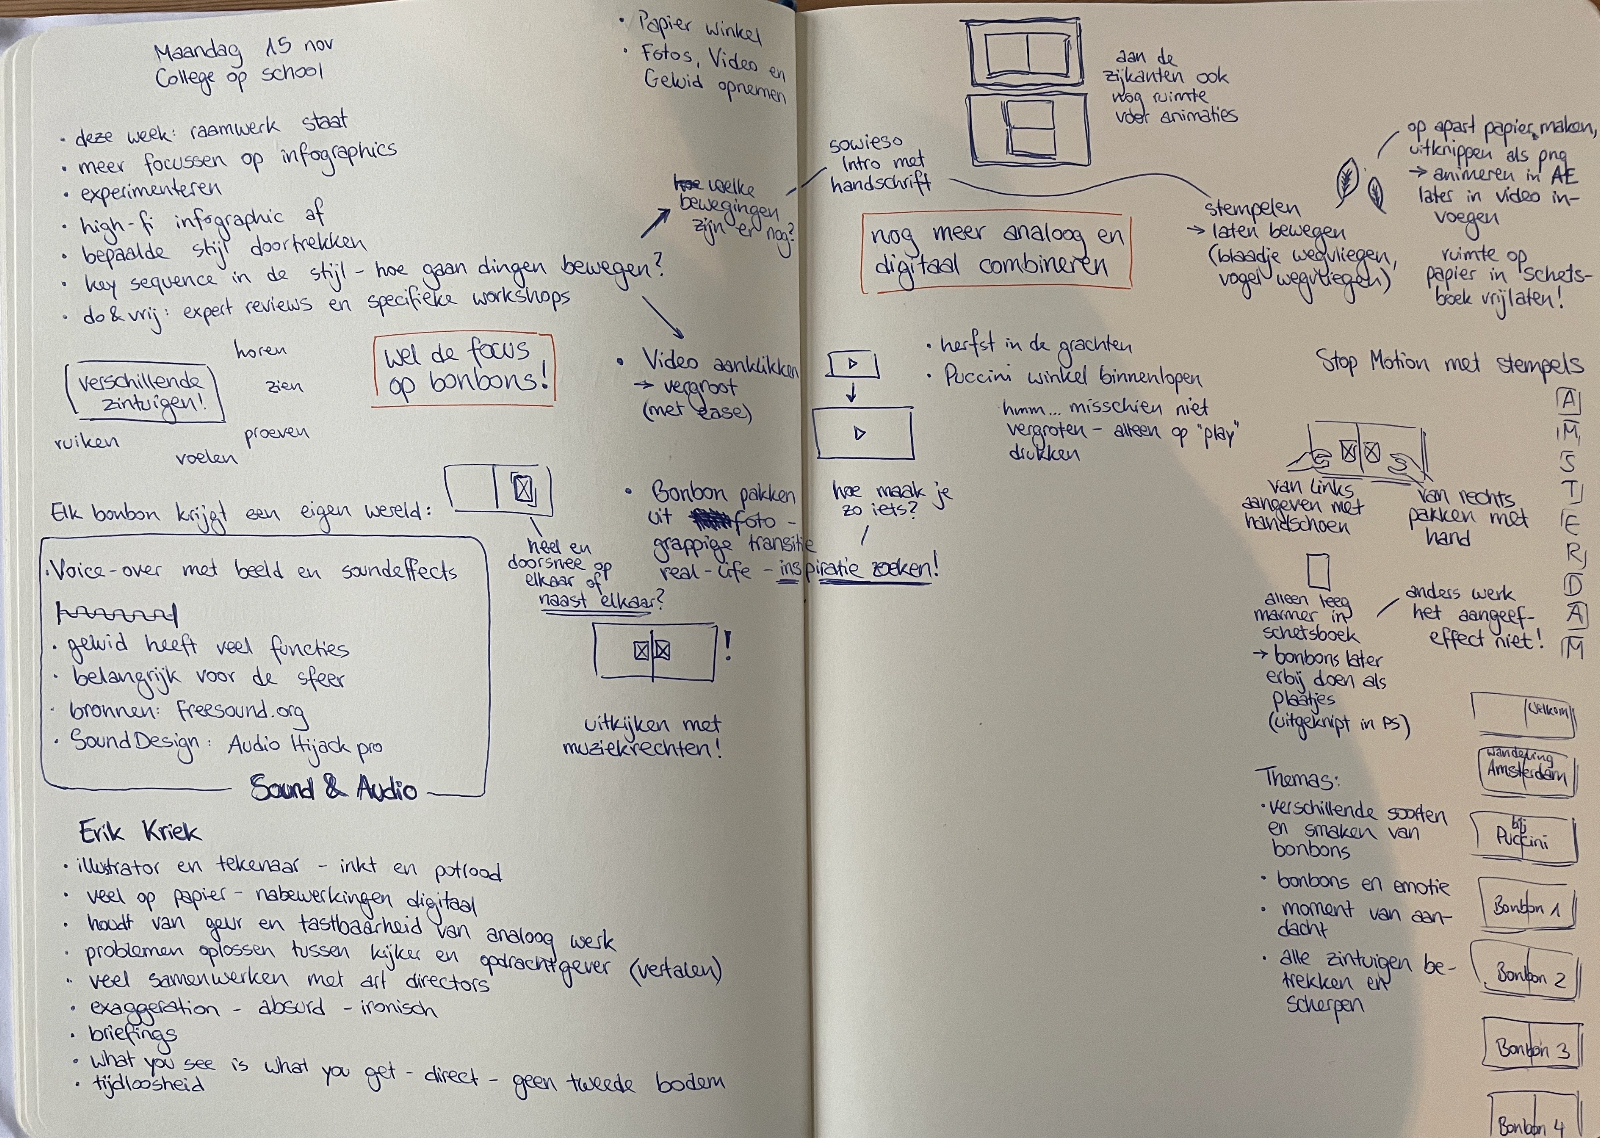 Maandag 15 nov
College op school
• deze week: raamwerk staat
• meer focussen op infographics
• experimenteren
• high-fi infographic af
• bepaalde stijl doortrekken
• key sequence in de stijl - hoe gaan dingen bewegen?
• do & vrij: expert reviews en specifieke workshops
• Papier winkel
• Fotos, Video en
Geluid opnemen
welke
bewegingen
zijn er nog?
verschillende
zintuigen!
horen
zien
proeven
voelen
ruiken
wel de focus
op bonbons!
• Video aanklikken
→ vergroot
(met ease)
Elk bonbon krijgt een eigen wereld:
heel en
doorsnee op
elkaar of
naast elkaar?
!
• Bonbon pakken
uit foto -
grappige transitie
real-life - inspiratie zoeken!
• Voice-over met beeld en soundeffects
• geluid heeft veel functies
• belangrijk voor de sfeer
• bronnen: freesound.org
• SoundDesign: Audio Hijack pro
Sound & Audio
uitkijken met
muziekrechten!
Erik Kriek
• illustrator en tekenaar - inkt en potlood
• veel op papier - nabewerkingen digitaal
• houdt van geur en tastbaarheid van analoog werk
• problemen oplossen tussen kijker en opdrachtgever (vertalen)
• veel samenwerken met art directors
• exaggeration - absurd - ironisch
• briefings
• what you see is what you get - direct - geen tweede bodem
• tijdloosheid
aan de
zijkanten ook
nog ruimte
voor animaties
sowieso
Intro met
handschrift
nog meer analoog en
digitaal combineren
stempelen
→ laten bewegen
(blaadje wegvliegen,
vogel wegvliegen)
op apart papier maken,
uitknippen als png
→ animeren in AE
later in video in-
voegen
ruimte op
papier in schets-
boek vrijlaten!
• herfst in de grachten
• Puccini winkel binnenlopen
hmm... misschien niet
vergroten - alleen op "play"
drukken
hoe maak je
zo iets?
Stop Motion met stempels
A
M
S
T
E
R
D
A
M
van links
aangeven met
handschoen
van rechts
pakken met
hand
alleen leeg
marmer in
schetsboek
→ bonbons later
erbij doen als
plaatjes
(uitgeknipt in PS)
anders werk
het aangeef-
effect niet!
Themas:
• verschillende soorten
en smaken van
bonbons
• bonbons en emotie
• moment van aan-
dacht
• alle zintuigen be-
trekken en
scherpen
Welkom
wandeling
Amsterdam
bij
Puccini
Bonbon 1
Bonbon 2
Bonbon 3
Bonbon 4